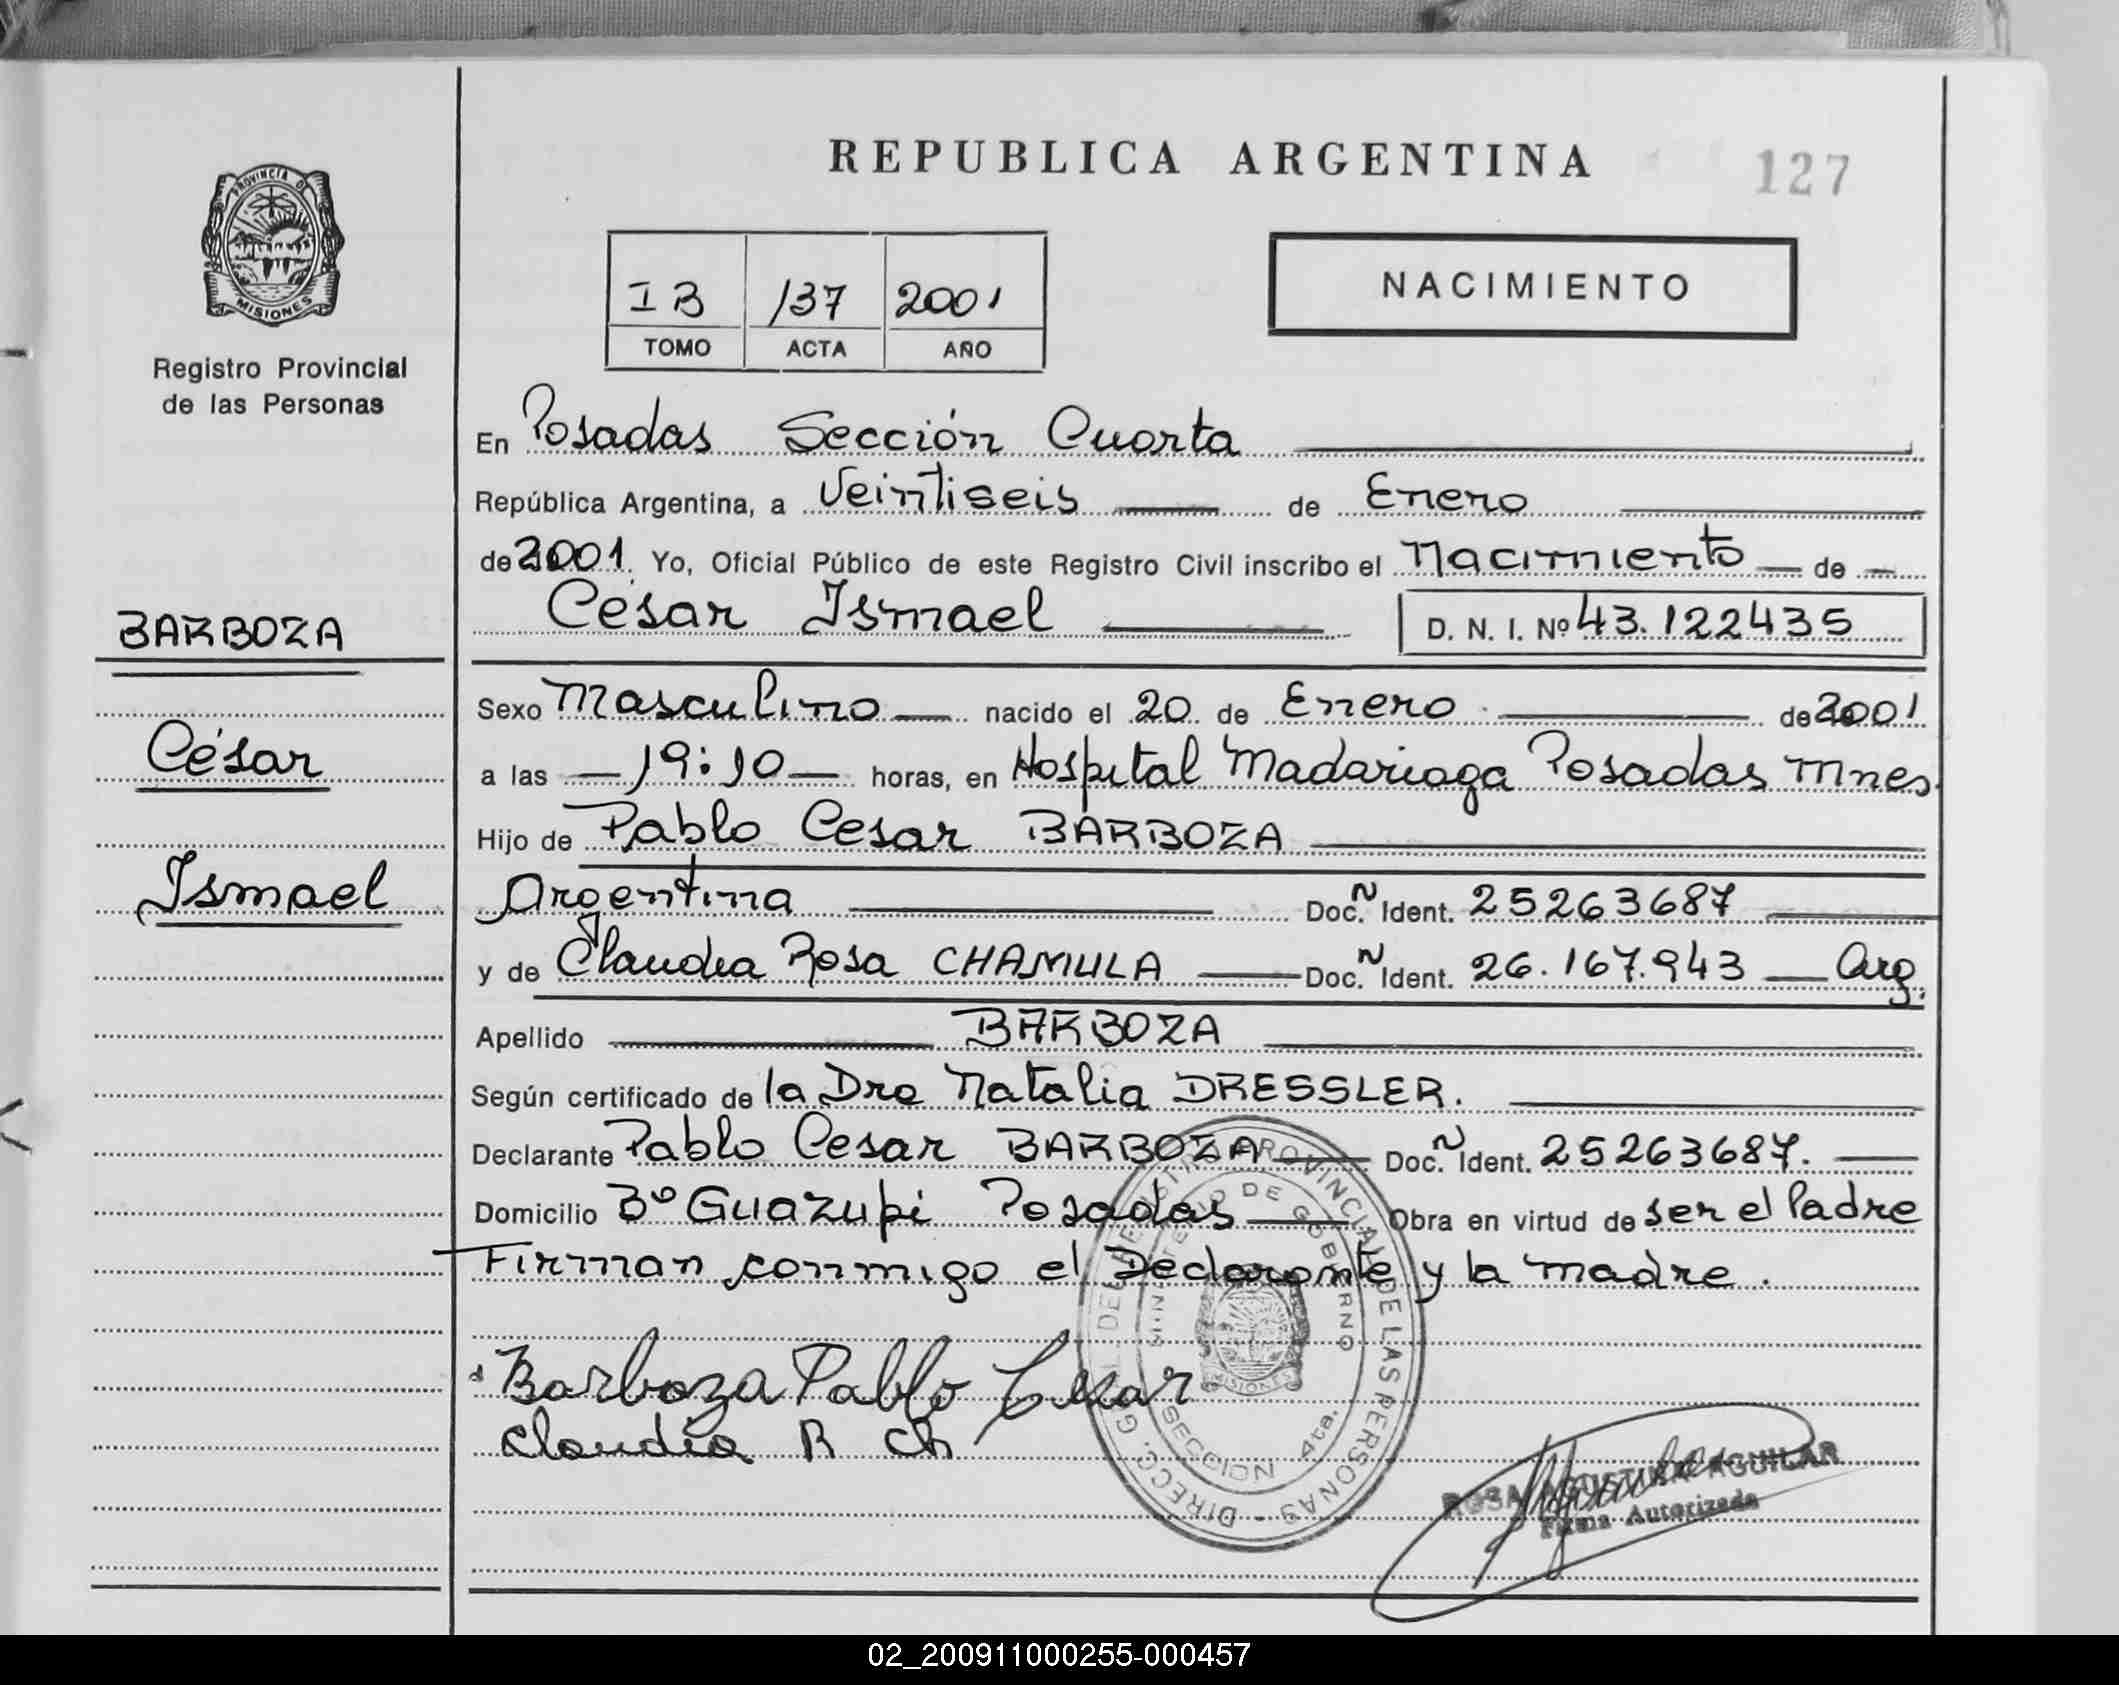 REPUBLICA ARGENTINA
127
PROVINCIA DE
MISIONES
Registro Provincial
de las Personas
I B /37 2001
TOMO ACTA AÑO
NACIMIENTO
En Posadas Sección Cuarta
República Argentina, a Veintiseis de Enero
de 2001 Yo, Oficial Público de este Registro Civil inscribo el Nacimiento de
César Ismael D. N. I. Nº 43.122435
BARBOZA
César
Ismael
Sexo Masculino nacido el 20 de Enero de 2001
a las 19:10 horas, en Hospital Madariaga Posadas Mnes.
Hijo de Pablo Cesar BARBOZA
Argentina Doc. Ident. 25263687
y de Claudia Rosa CHAMULA Doc. Ident. 26.167.943 Arg.
Apellido BARBOZA
Según certificado de la Dra Natalia DRESSLER.
Declarante Pablo Cesar BARBOZA Doc. Ident. 25263687.
Domicilio Bº Guazupi Posadas Obra en virtud de ser el Padre
Firman conmigo el Declarante y la madre.
Barboza Pablo Cesar
Claudia R Ch
DIRECC. GRAL. DEL REGISTRO PROVINCIAL DE LAS PERSONAS
MINISTERIO DE GOBIERNO
MISIONES
SECCION 4ta.
ROSA AGUSTINA AGUILAR
Firma Autorizada
02_200911000255-000457